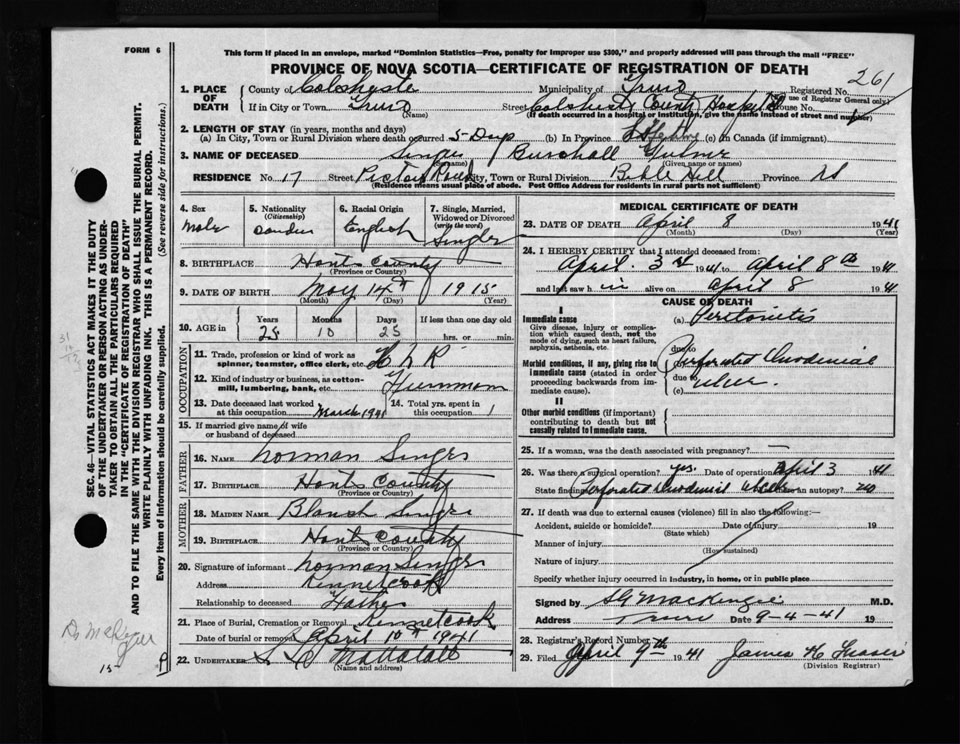 FORM 6
This form if placed in an envelope, marked "Dominion Statistics—Free, penalty for improper use $300," and properly addressed will pass through the mail "FREE"
PROVINCE OF NOVA SCOTIA—CERTIFICATE OF REGISTRATION OF DEATH
261
1. PLACE OF DEATH
County of Colchester Municipality of Truro Registered No.
(For use of Registrar General only)
If in City or Town Truro Street Colchester County Hospital House No.
(Name) (If death occurred in a hospital or institution, give the name instead of street and number)
2. LENGTH OF STAY (in years, months and days)
(a) In City, Town or Rural Division where death occurred 5-Days (b) In Province (c) In Canada (if immigrant)
3. NAME OF DECEASED Singer Burchall
(Surname) (Given name or names)
RESIDENCE No. 17 Street Pictou Road City, Town or Rural Division Bible Hill Province NS
(Residence means usual place of abode. Post Office Address for residents in rural parts not sufficient)
4. Sex
Male
5. Nationality (Citizenship)
6. Racial Origin
English
7. Single, Married, Widowed or Divorced (write the word)
Single
8. BIRTHPLACE Hants County
(Province or Country)
9. DATE OF BIRTH May 14th 1915
(Month) (Day) (Year)
10. AGE in
Years Months Days If less than one day old
25 10 25 hrs. or min.
OCCUPATION
11. Trade, profession or kind of work as spinner, teamster, office clerk, etc.
12. Kind of industry or business, as cotton-mill, lumbering, bank, etc.
13. Date deceased last worked at this occupation March 1941
14. Total yrs. spent in this occupation 1
15. If married give name of wife or husband of deceased
FATHER
16. NAME Norman Singer
17. BIRTHPLACE Hants County
(Province or Country)
MOTHER
18. MAIDEN NAME Blanch Singer
19. BIRTHPLACE Hants County
(Province or Country)
20. Signature of informant Norman Singer
Address Kennetcook
Relationship to deceased Father
21. Place of Burial, Cremation or Removal Kennetcook
Date of burial or removal April 10th 1941
22. UNDERTAKER Mattatall
(Name and address)
MEDICAL CERTIFICATE OF DEATH
23. DATE OF DEATH April 8 1941
(Month) (Day) (Year)
24. I HEREBY CERTIFY that I attended deceased from:
April 3rd 1941 to April 8th 1941
and last saw him alive on April 8 1941
CAUSE OF DEATH
I
Immediate cause
Give disease, injury or complication which caused death, not the mode of dying, such as heart failure, asphyxia, asthenia, etc.
(a) Peritonitis
due to
Morbid conditions, if any, giving rise to immediate cause (stated in order proceeding backwards from immediate cause).
(b) Perforated Duodenial
due to
ulcer.
(c)
II
Other morbid conditions (if important) contributing to death but not causally related to immediate cause.
25. If a woman, was the death associated with pregnancy? —
26. Was there a surgical operation? yes. Date of operation April 3 1941
State findings Perforated Duodenial ulcer Was there an autopsy? no
27. If death was due to external causes (violence) fill in also the following:—
Accident, suicide or homicide? Date of injury 19
(State which)
Manner of injury
(How sustained)
Nature of injury
Specify whether injury occurred in industry, in home, or in public place
Signed by SG MacKenzie M.D.
Address Truro Date 9-4-41 19
28. Registrar's Record Number
29. Filed April 9th 1941 James H Fraser
(Division Registrar)
SEC. 46- VITAL STATISTICS ACT MAKES IT THE DUTY
OF THE UNDERTAKER OR PERSON ACTING AS UNDER-
TAKER TO OBTAIN ALL THE PARTICULARS REQUIRED
IN THE "CERTIFICATE OF REGISTRATION OF DEATH"
AND TO FILE THE SAME WITH THE DIVISION REGISTRAR WHO SHALL ISSUE THE BURIAL PERMIT.
WRITE PLAINLY WITH UNFADING INK. THIS IS A PERMANENT RECORD.
Every item of information should be carefully supplied. (See reverse side for instructions.)